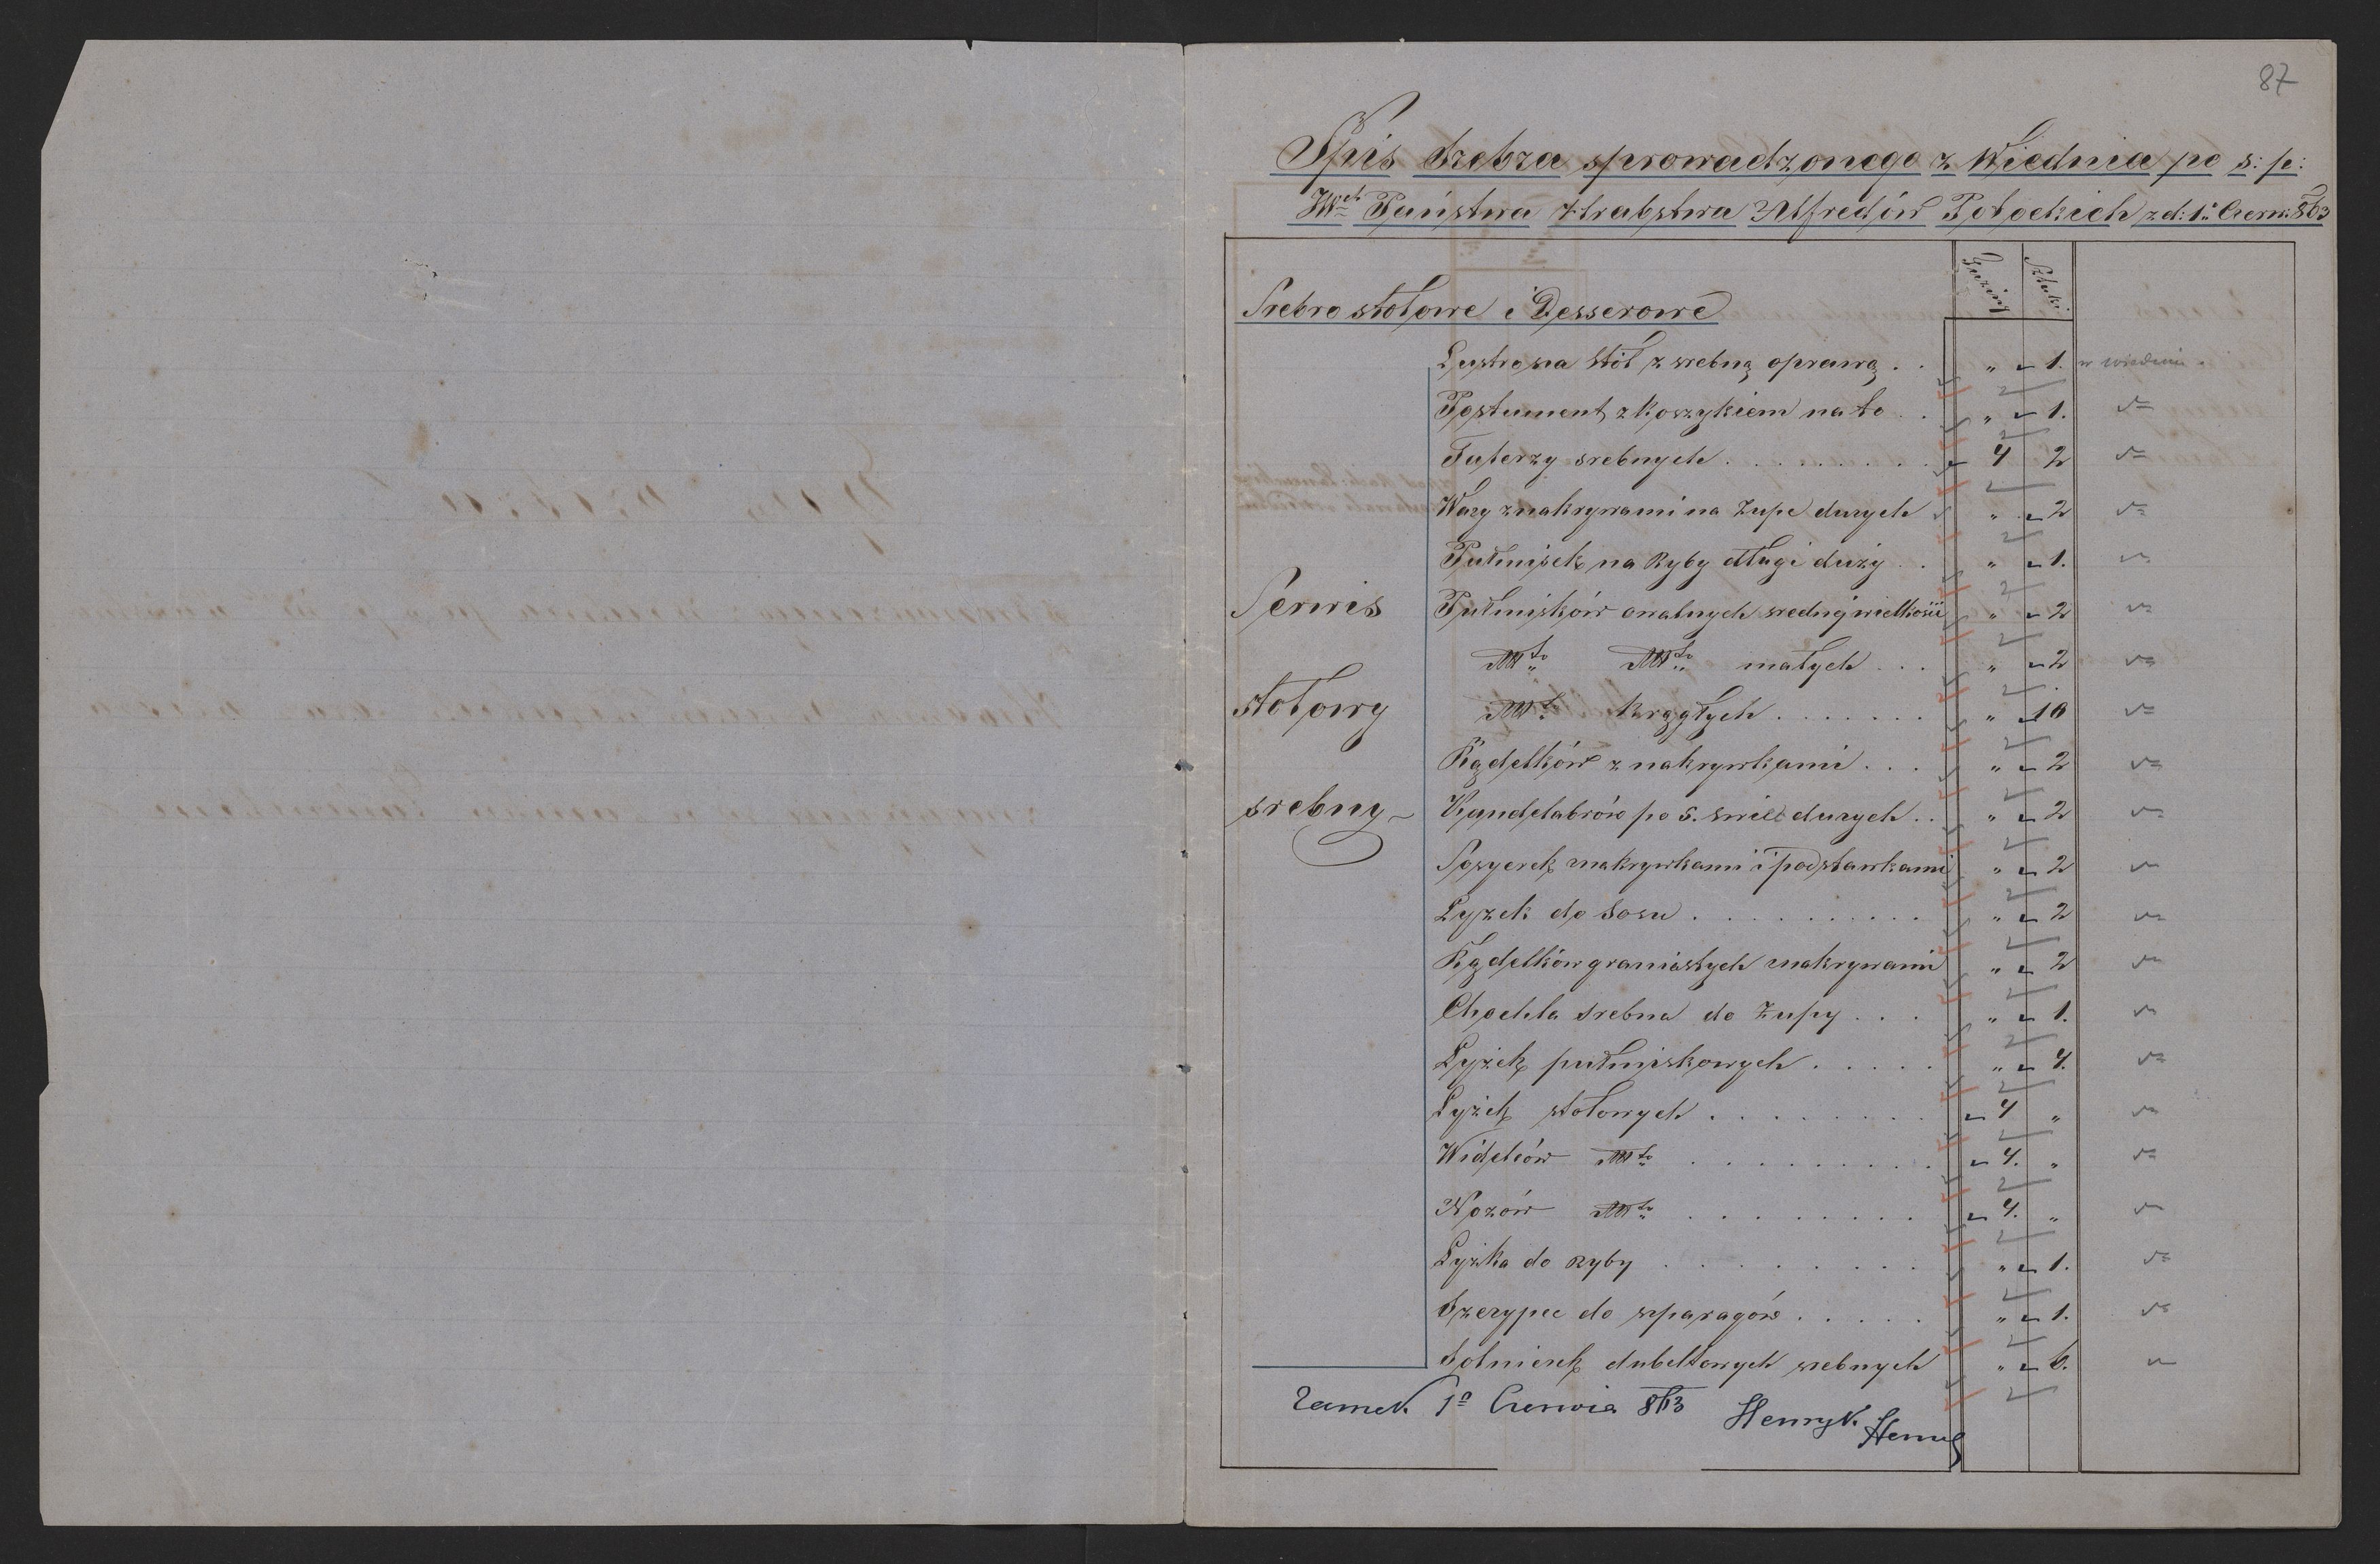 87
Spis Srebra sprowadzonego z Wiednia po ś: p:
JWch Państwa Hrabstwa Alfredów Potockich z d: 1o Czerw: 863
Tuziny Sztuki
Srebro stołowe i Desserowe
Lustro na Stół z srebną oprawą . . " 1. w wiedniu
Postument z Koszykiem na to . . " 1.
Talerzy srebnych . . . . . . . . . 4 2
Wazy z nakrywami na Zupe duzych " 2
Pułmisek na Ryby długi duży . . " 1.
Serwis Pułmisków owalnych średnij wielkosci " 2
Dto Dto małych . . . " 2
stołowy Dto krągłych . . . . . . . " 10
Rądelków z nakrywkami . . . " 2
srebny Kandelabrów po 5. swiec duzych . . " 2
Sosyerek z nakrywkami i podstawkami " 2
Lyzek do Sosu . . . . . . . . . . " 2
Rądelków graniastych z nakrywami " 2
Chochla Srebna do Zupy . . . " 1.
Lyżek pułmiskowych . . . . . " 4.
Lyżek stołowych . . . . . . . . 4 "
Widelców Dto . . . . . . . . . 4. "
Nozów Dto . . . . . . . . . 4. "
Lyżka do Ryby . . . . . . . . . " 1.
Szczypce do szparagów . . . . . " 1.
Solniczek dubeltowych srebnych " 6.
Zamek 1o Czerwca 863 Henryk